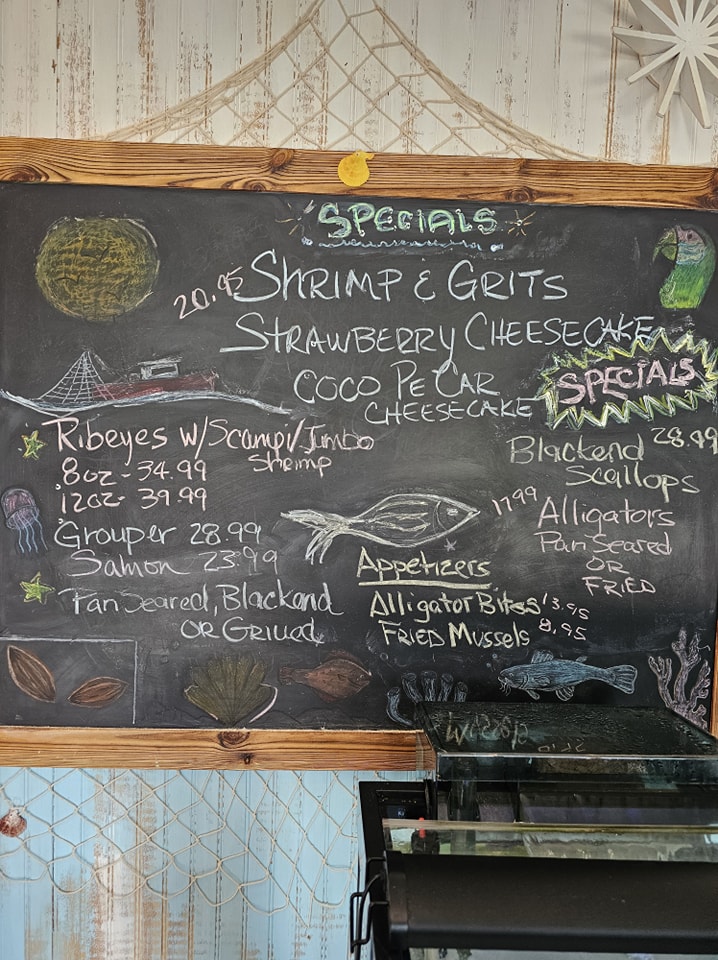 SPECIALS
20.95 SHRIMP & GRITS
STRAWBERRY CHEESECAKE
COCO PE CAR
CHEESECAKE
SPECIALS
Ribeyes w/Scampi/Jumbo
Shrimp
8oz - 34.99
12oz - 39.99
Grouper 28.99
Salmon 23.99
Pan Seared, Blackend
OR Grilled
Blackend 28.99
Scallops
17.99 Alligators
Pan Seared
OR
FRIED
Appetizers
Alligator Bites 13.95
FRIED Mussels 8.95